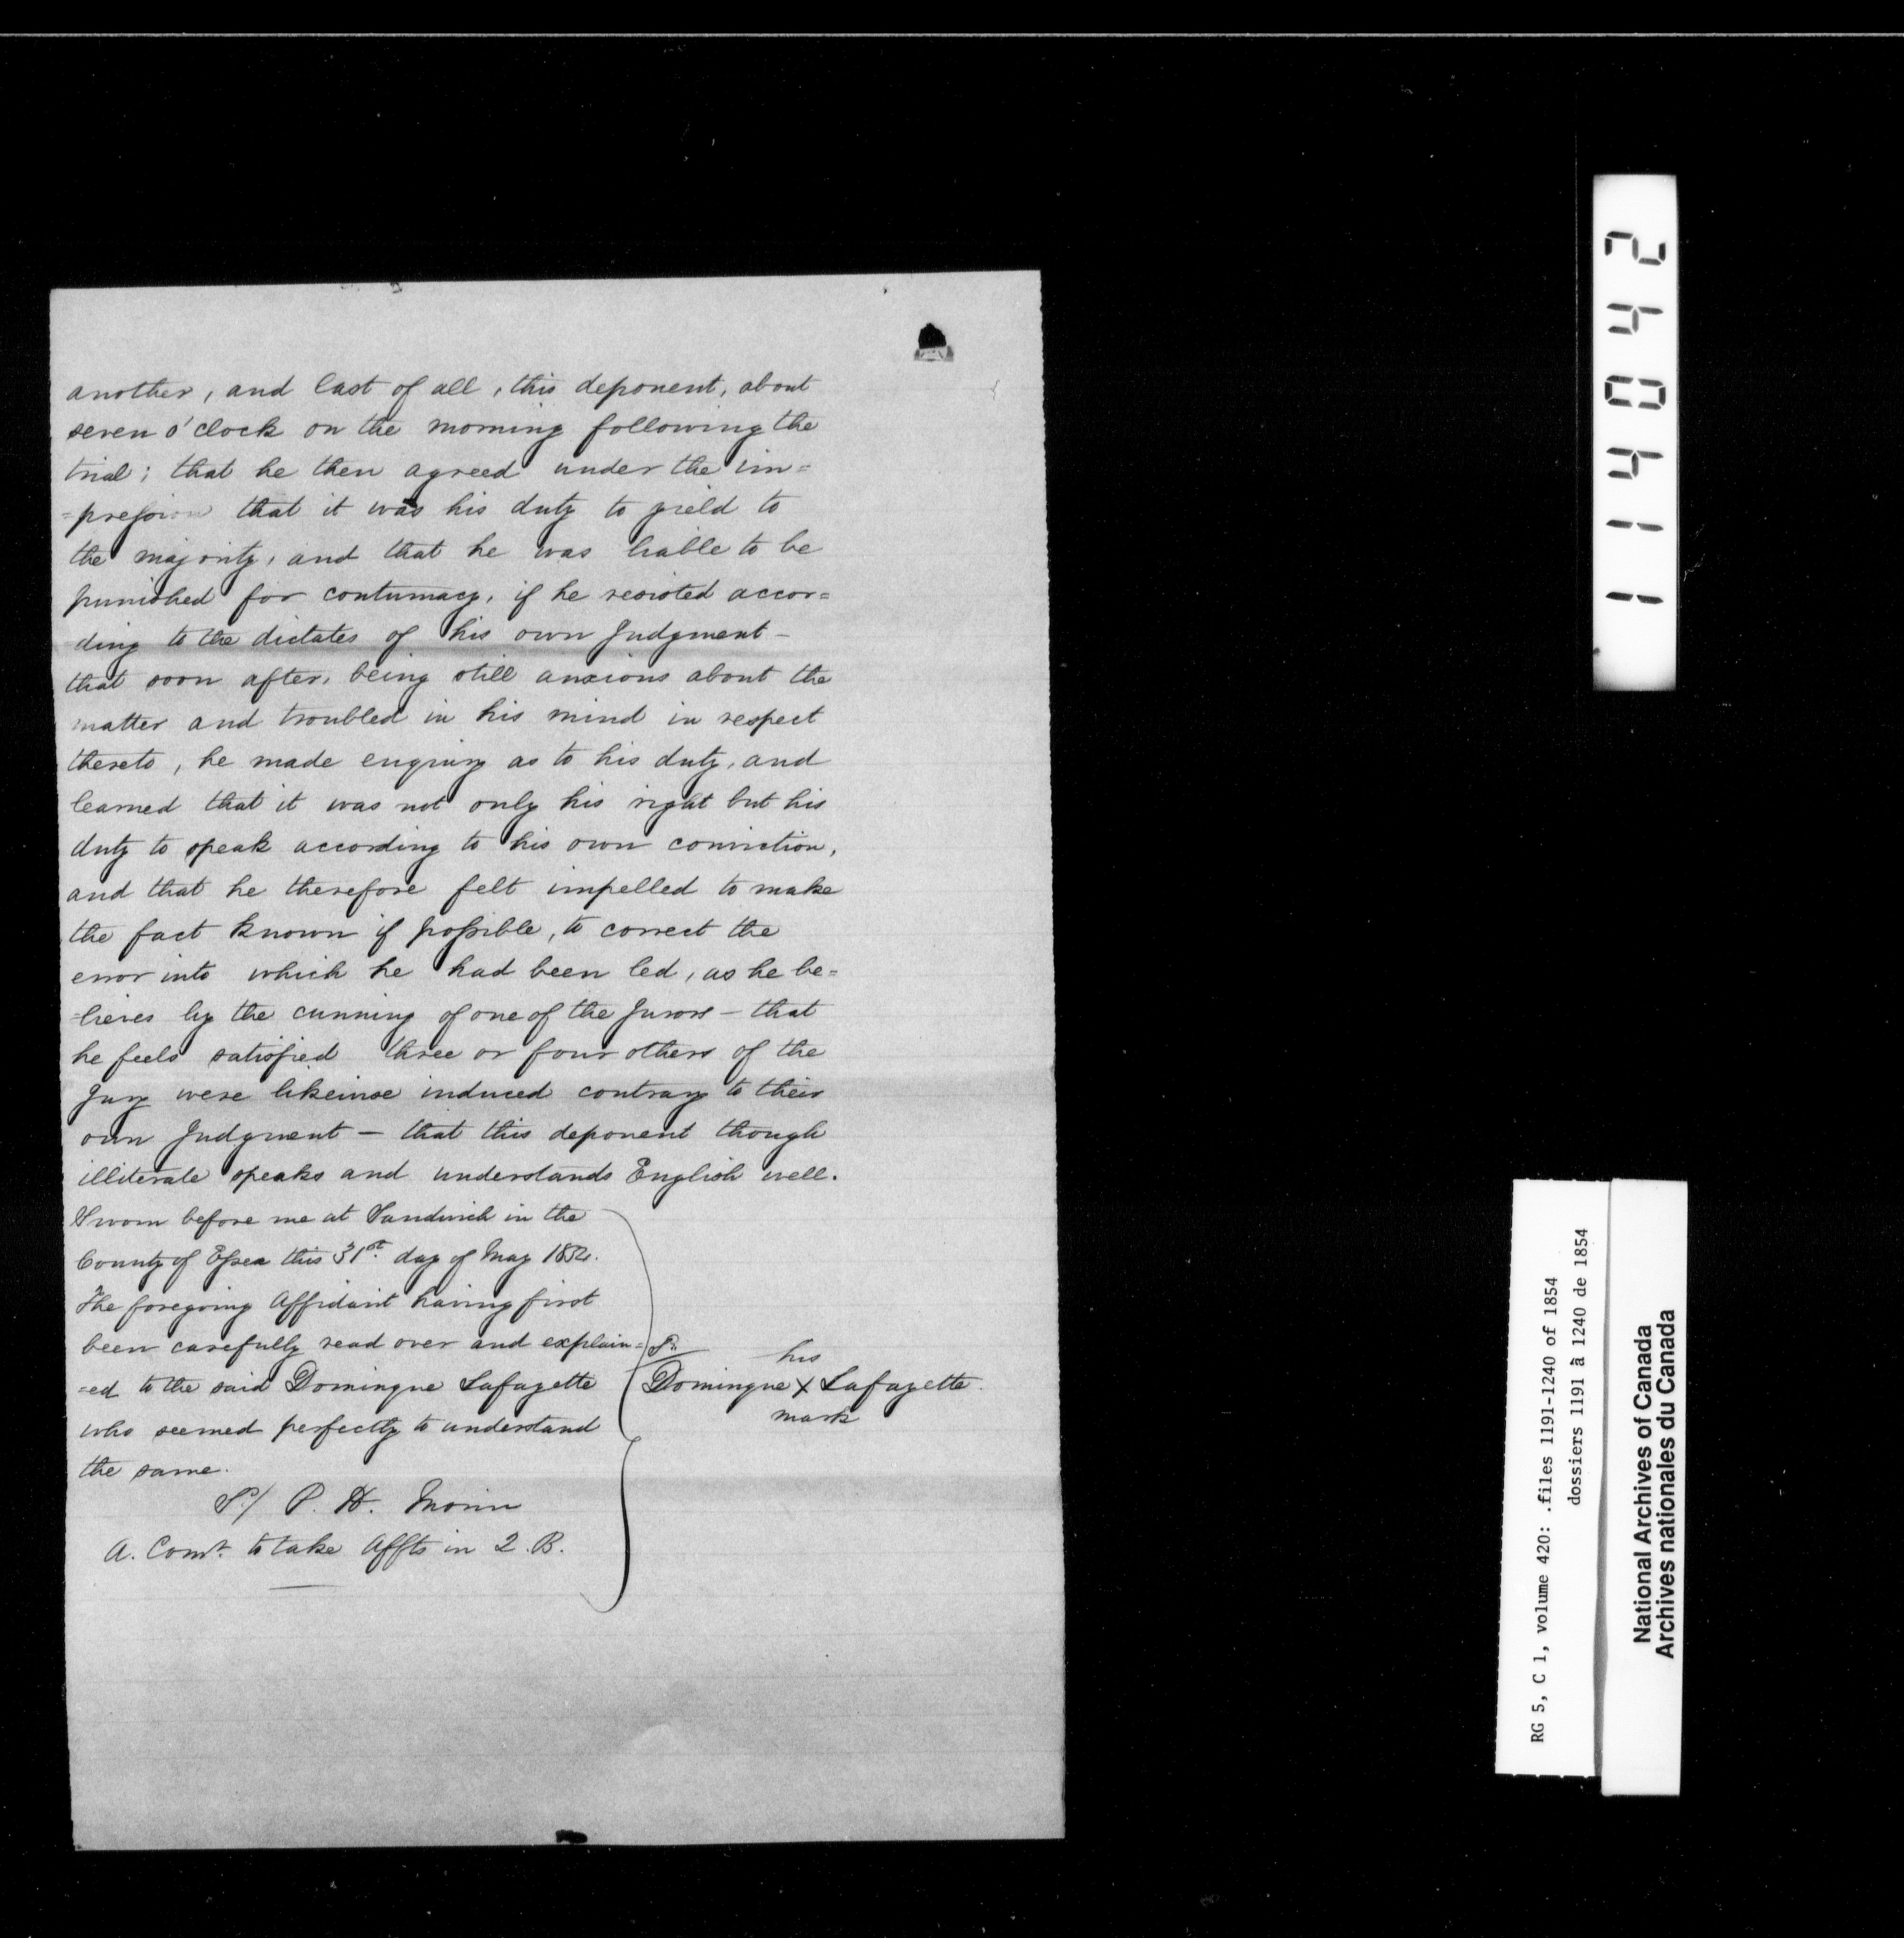 another, and last of all, this deponent, about
seven o'clock on the morning following the
trial; that he then agreed under the im=
=pression that it was his duty to yield to
the majority, and that he was liable to be
punished for contumacy, if he resisted accor=
ding to the dictates of his own Judgment —
that soon after, being still anxious about the
matter and troubled in his mind in respect
thereto, he made enquiry as to his duty, and
learned that it was not only his right but his
duty to speak according to his own conviction,
and that he therefore felt impelled to make
the fact known if possible, to correct the
error into which he had been led, as he be=
=lieves by the cunning of one of the Jurors — that
he feels satisfied three or four others of the
Jury were likewise induced contrary to their
own Judgment — that this deponent though
illiterate speaks and understands English well.
Sworn before me at Sandwich in the
County of Essex this 31st. day of May 1854.
The foregoing Affidavit having first
been carefully read over and explain=
=ed to the said Domingue Lafayette
who seemed perfectly to understand
the same.
S/ P. H. Morin
A. Comr. to take Affts in Q. B.
his
Domingue X Lafayette.
mark
114042
RG 5, C 1, volume 420: .files 1191-1240 of 1854
dossiers 1191 à 1240 de 1854
National Archives of Canada
Archives nationales du Canada